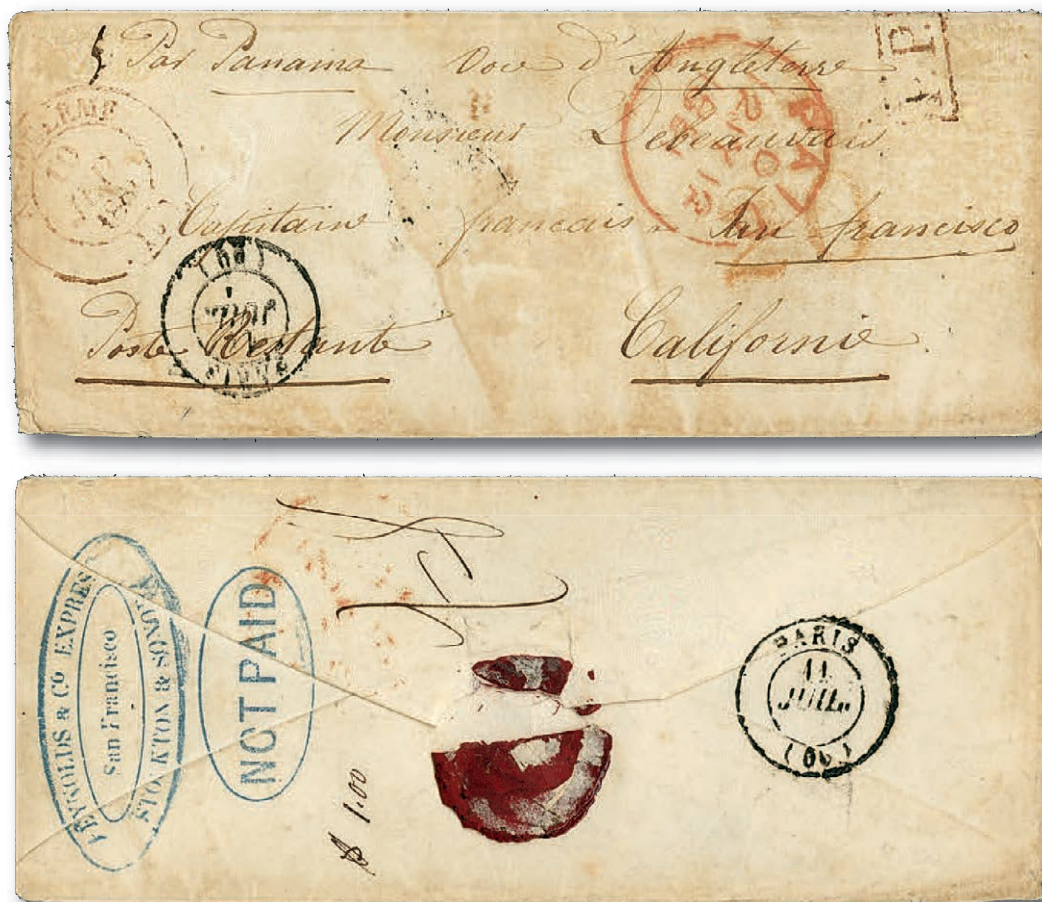 Par Panama Voie d'Angleterre
P.P.
Monsieur Debeauvais
Capitaine francais. San francisco
Poste Restante Californie.
PAID
PARIS
(60)
REYNOLDS & Co EXPRESS
San Francisco
STOCKTON & SONORA
NOT PAID
$ 1.00
PARIS
11
JUIL.
(60)